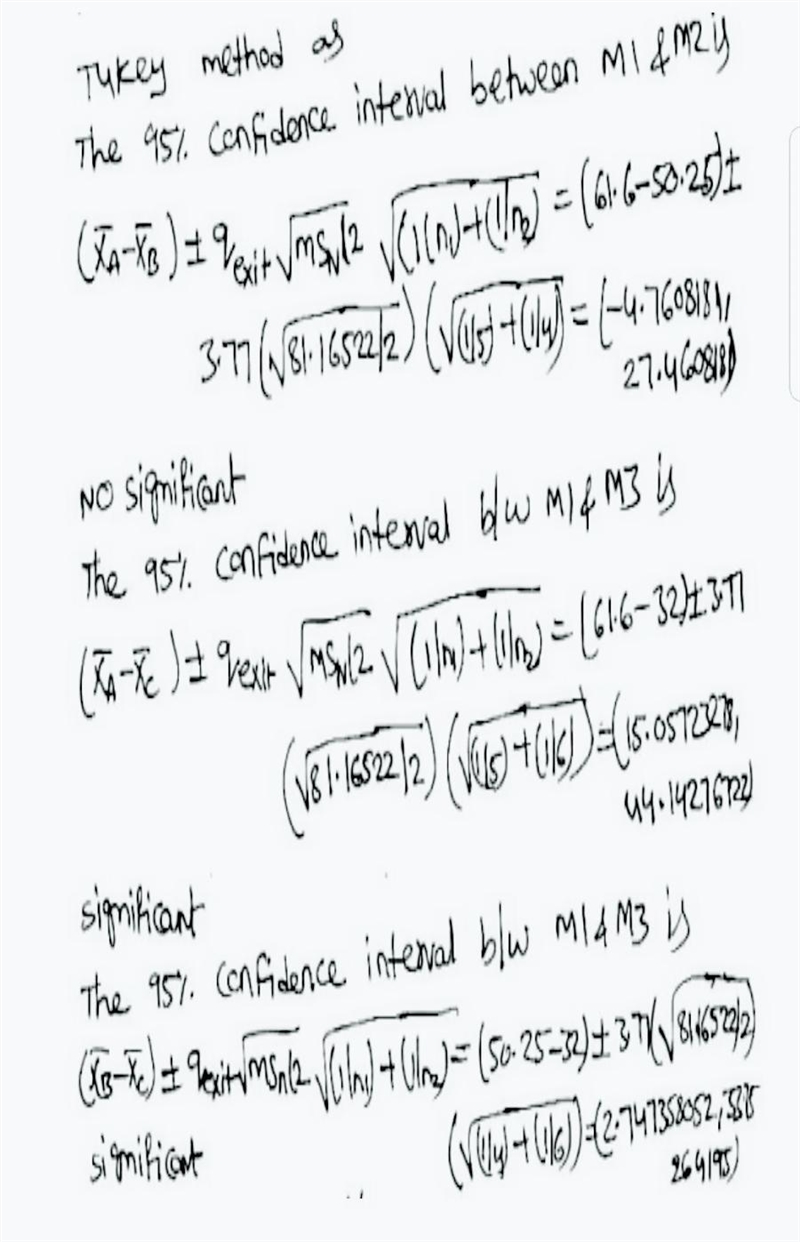 Tukey method as
The 95% Confidence interval between M1 & M2 is
(X̄A-X̄B) ± qexit √MSN/2 √(1/n1)+(1/n2) = (61.6-50.25) ±
3.77(√81.16522/2) (√(1/5)+(1/4)) = (-4.7608181,
27.4608181)
NO significant
The 95% confidence interval b/w M1 & M3 is
(X̄A-X̄C) ± qexit √MSN/2 √(1/n1)+(1/n2) = (61.6-32) ± 3.77
(√81.16522/2) (√(1/5)+(1/6)) = (15.05723278,
44.14276722)
significant
The 95% Confidence interval b/w M1 & M3 is
(X̄B-X̄C) ± qexit √MSN/2 √(1/n1)+(1/n2) = (50.25-32) ± 3.77(√81.16522/2)
significant (√(1/4)+(1/6)) = (2.747358052,
264195)